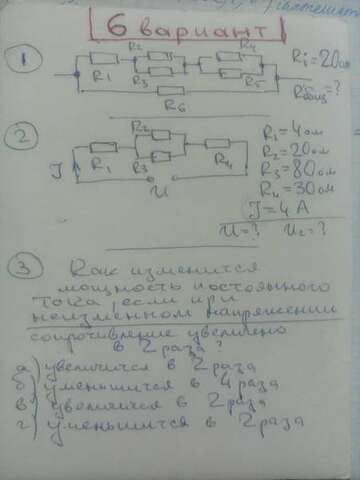 6 вариант
1
R1 R2 R3 R4 R5 R6
Ri=20ом
Rобщ=?
2
I R1 R2 R3 R4 U
R1=4ом
R2=20ом
R3=80ом
R4=30ом
I=4А
U=? U2=?
3 Как изменится
мощность постоянного
тока, если при
неизменном напряжении
сопротивление увеличено
в 2 раза?
а) увеличится в 2 раза
б) уменьшится в 4 раза
в) увеличится в 2 раза
г) уменьшится в 2 раза